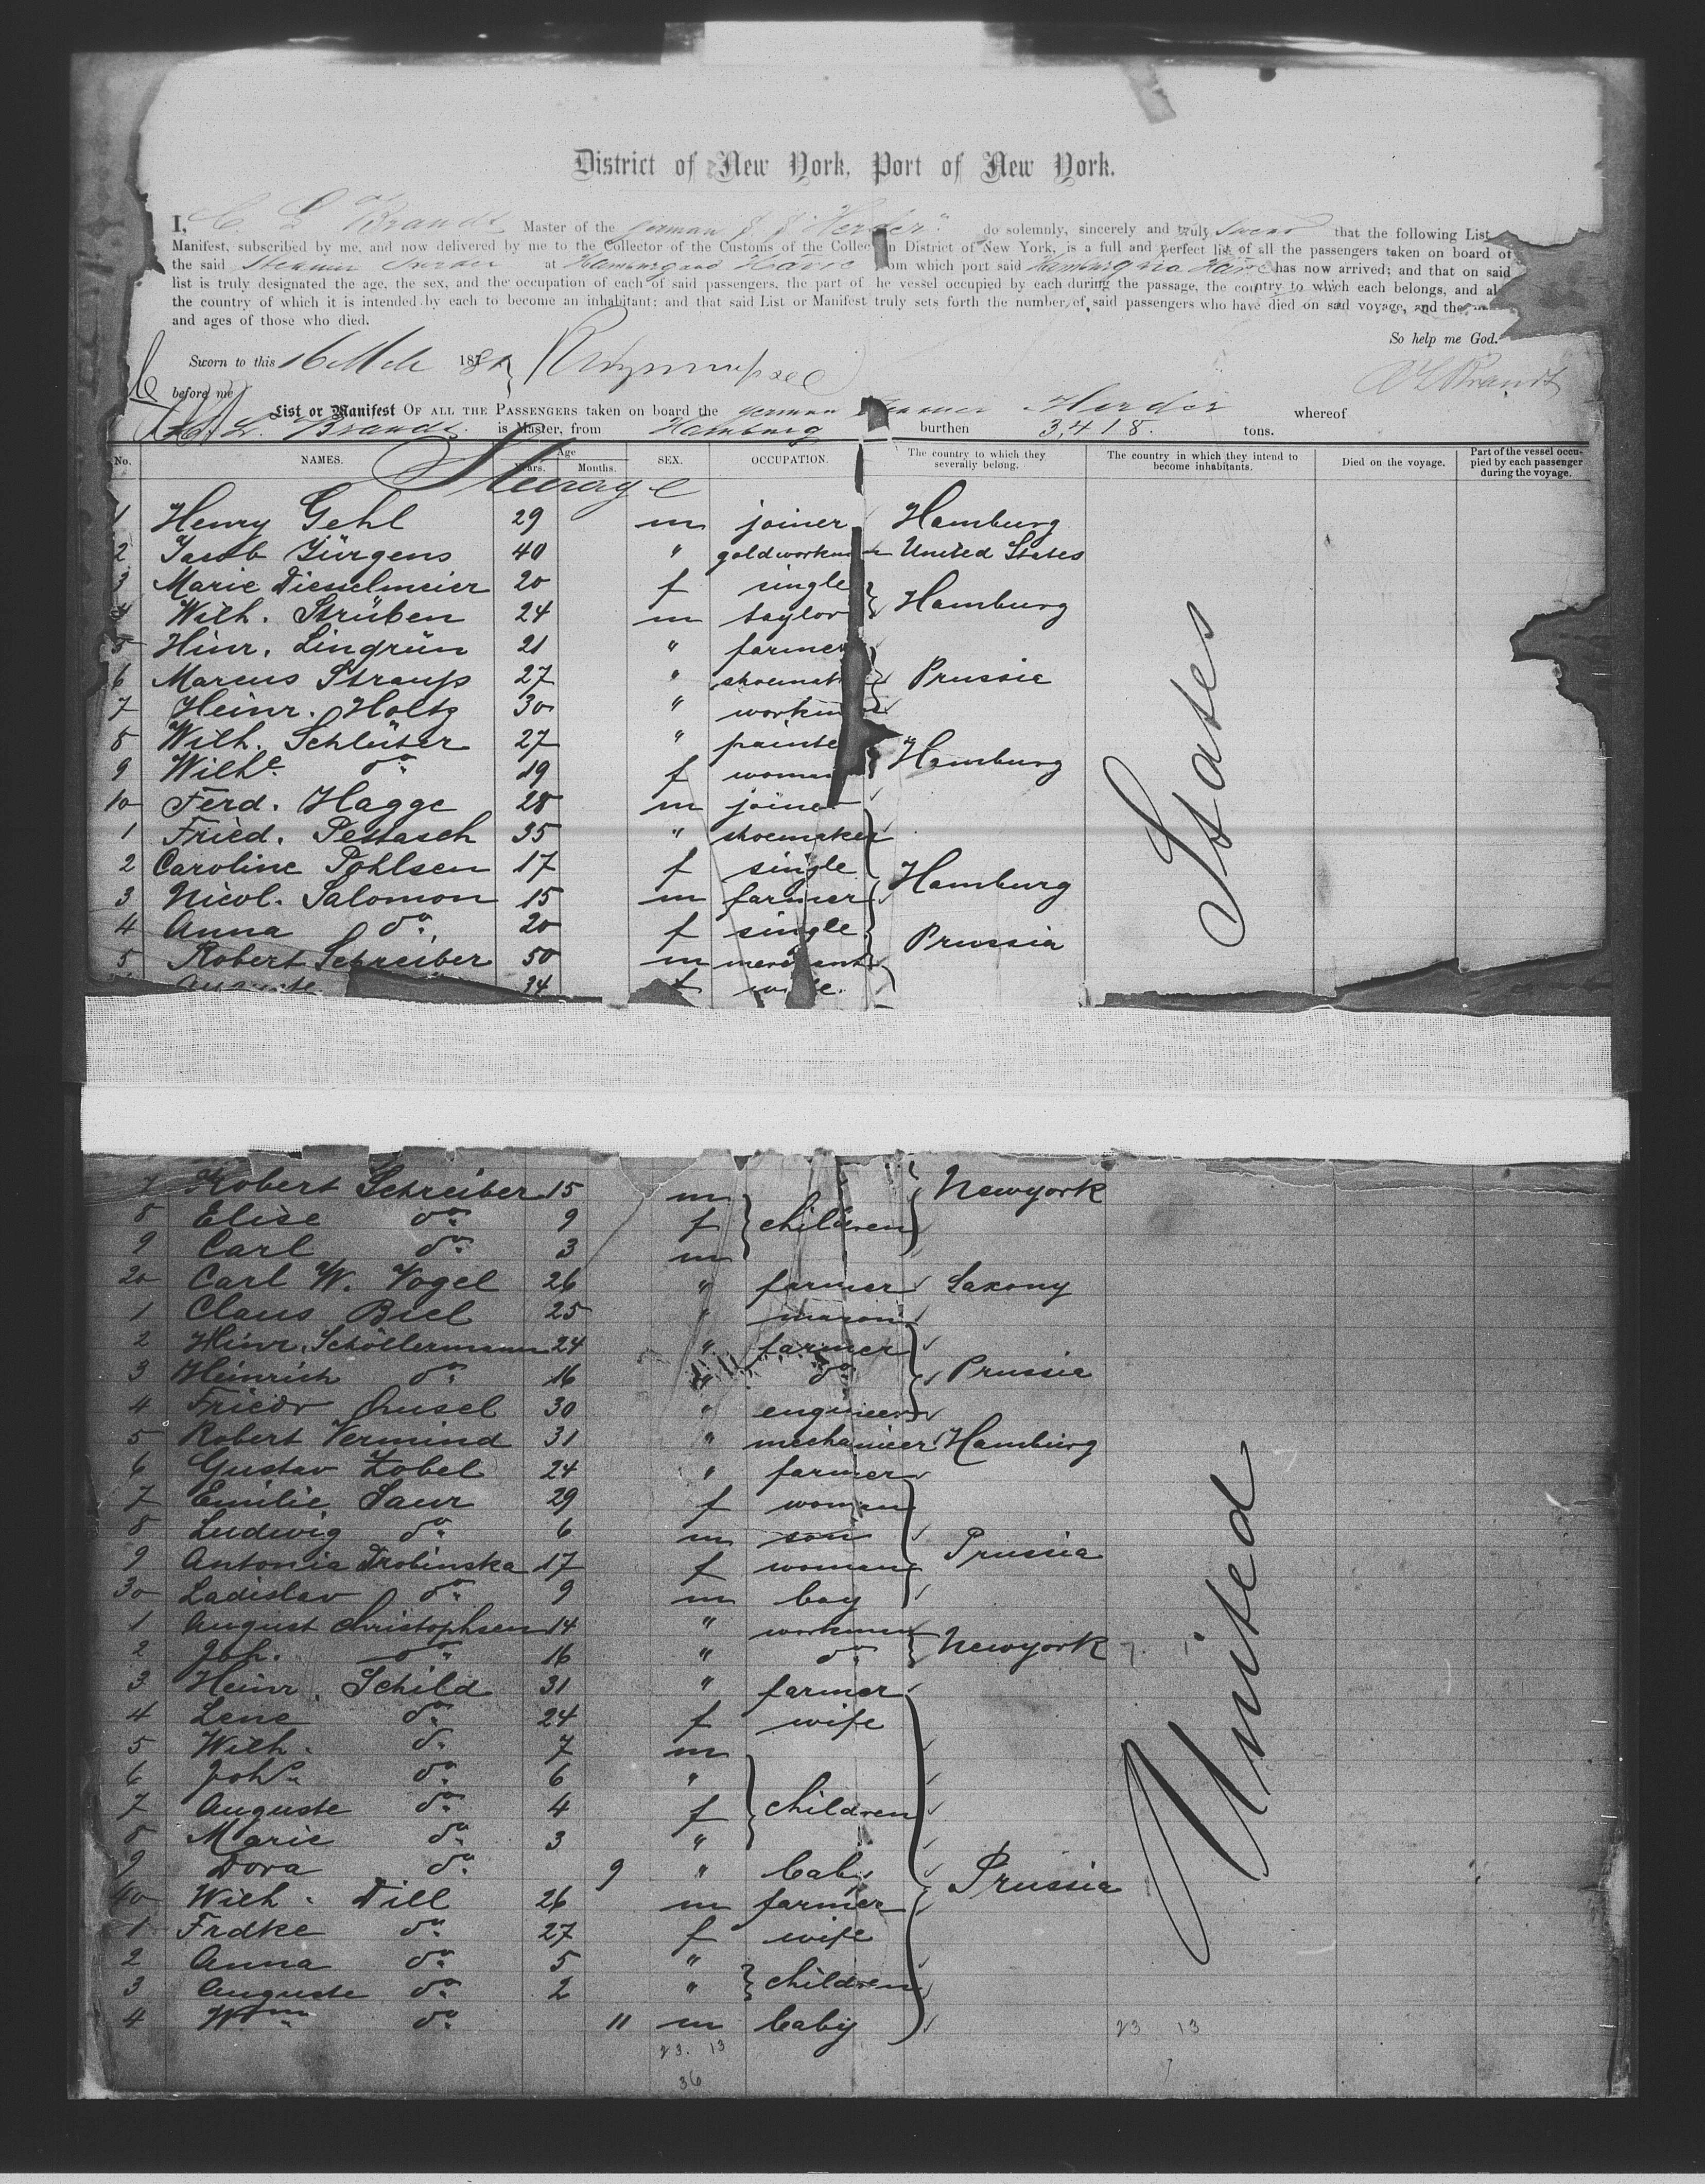 District of New York, Port of New York.
I, C. L. Brandt Master of the german S. S. "Herder" do solemnly, sincerely and truly swear that the following List
Manifest, subscribed by me, and now delivered by me to the Collector of the Customs of the Collec n District of New York, is a full and perfect list of all the passengers taken on board of
the said Steamer Herder at Hamburg and Havre om which port said Hamburg via Havre has now arrived; and that on said
list is truly designated the age, the sex, and the occupation of each of said passengers, the part of he vessel occupied by each during the passage, the country to which each belongs, and al
the country of which it is intended by each to become an inhabitant; and that said List or Manifest truly sets forth the number of said passengers who have died on said voyage, and the
and ages of those who died.
So help me God.
Sworn to this 16 Mch 187
before me
C L Brandt
List or Manifest OF ALL THE PASSENGERS taken on board the german Steamer Herder whereof
C. L. Brandt. is Master, from Hamburg burthen 3,418. tons.
No. NAMES. Age Years. Months. SEX. OCCUPATION. The country to which they severally belong. The country in which they intend to become inhabitants. Died on the voyage. Part of the vessel occupied by each passenger during the voyage.
Steerage
1 Henry Gehl 29 m joiner Hamburg
2 Jacob Jürgens 40 " goldworkman United States
3 Marie Diesselmeier 20 f single
4 Wilh. Strüben 24 m taylor Hamburg
5 Hinr. Lingrün 21 " farmer
6 Marcus Strauss 27 " shoemak Prussia
7 Heinr. Holtz 30 " workm
8 Wilh. Schlüter 27 " painte
9 Wilhe. do. 19 f woman Hamburg
10 Ferd. Hagge 28 m joiner
1 Fried. Pestasch 35 " shoemaker
2 Caroline Pohlsen 17 f single Hamburg
3 Nicol. Salomon 15 m farmer
4 Anna do. 20 f single Prussia
5 Robert Schreiber 50 m merchant
Auguste 34 f wife
7 Robert Schreiber 15 m Newyork
8 Elise do. 9 f children
9 Carl do. 3 m
20 Carl W. Vogel 26 " farmer Saxony
1 Claus Biel 25 " mason
2 Hinr. Schöllermann 24 " farmer
3 Heinrich do. 16 " do. Prussia
4 Friedr Insel 30 " engineer
5 Robert Vermind 31 " mechanicer Hamburg
6 Gustav Zobel 24 " farmer
7 Emilie Saur 29 f woman
8 Ludwig do. 6 m son
9 Antonia Drobinska 17 f woman Prussia
30 Ladislav do. 9 m boy
1 August Christophsen 14 " workman
2 Joh. do. 16 " do. Newyork
3 Heinr. Schild 31 " farmer
4 Lene do. 24 f wife
5 Wilh. do. 7 m
6 Johs. do. 6 "
7 Auguste do. 4 f children
8 Marie do. 3 "
9 Dora do. 9 " baby Prussia
40 Wilh. Dill 26 m farmer
1 Frdke do. 27 f wife
2 Anna do. 5 "
3 Auguste do. 2 " children
4 Wm. do. 11 m baby
United States
23. 13
36
23 13